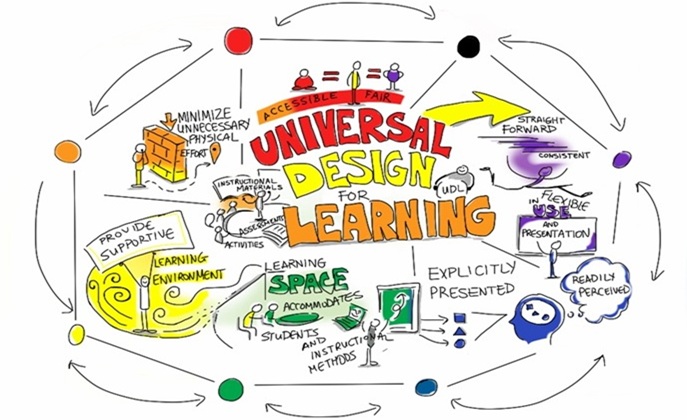 ACCESSIBLE FAIR
UNIVERSAL
DESIGN
FOR
LEARNING
MINIMIZE
UNNECESSARY
PHYSICAL
EFFORT
INSTRUCTIONAL
MATERIALS
ASSESSMENTS
ACTIVITIES
UDL
STRAIGHT
FORWARD
CONSISTENT
FLEXIBLE
IN USE
AND
PRESENTATION
PROVIDE
SUPPORTIVE
LEARNING
ENVIRONMENT
LEARNING
SPACE
ACCOMMODATES
STUDENTS
AND INSTRUCTIONAL
METHODS
EXPLICITLY
PRESENTED
READILY
PERCEIVED